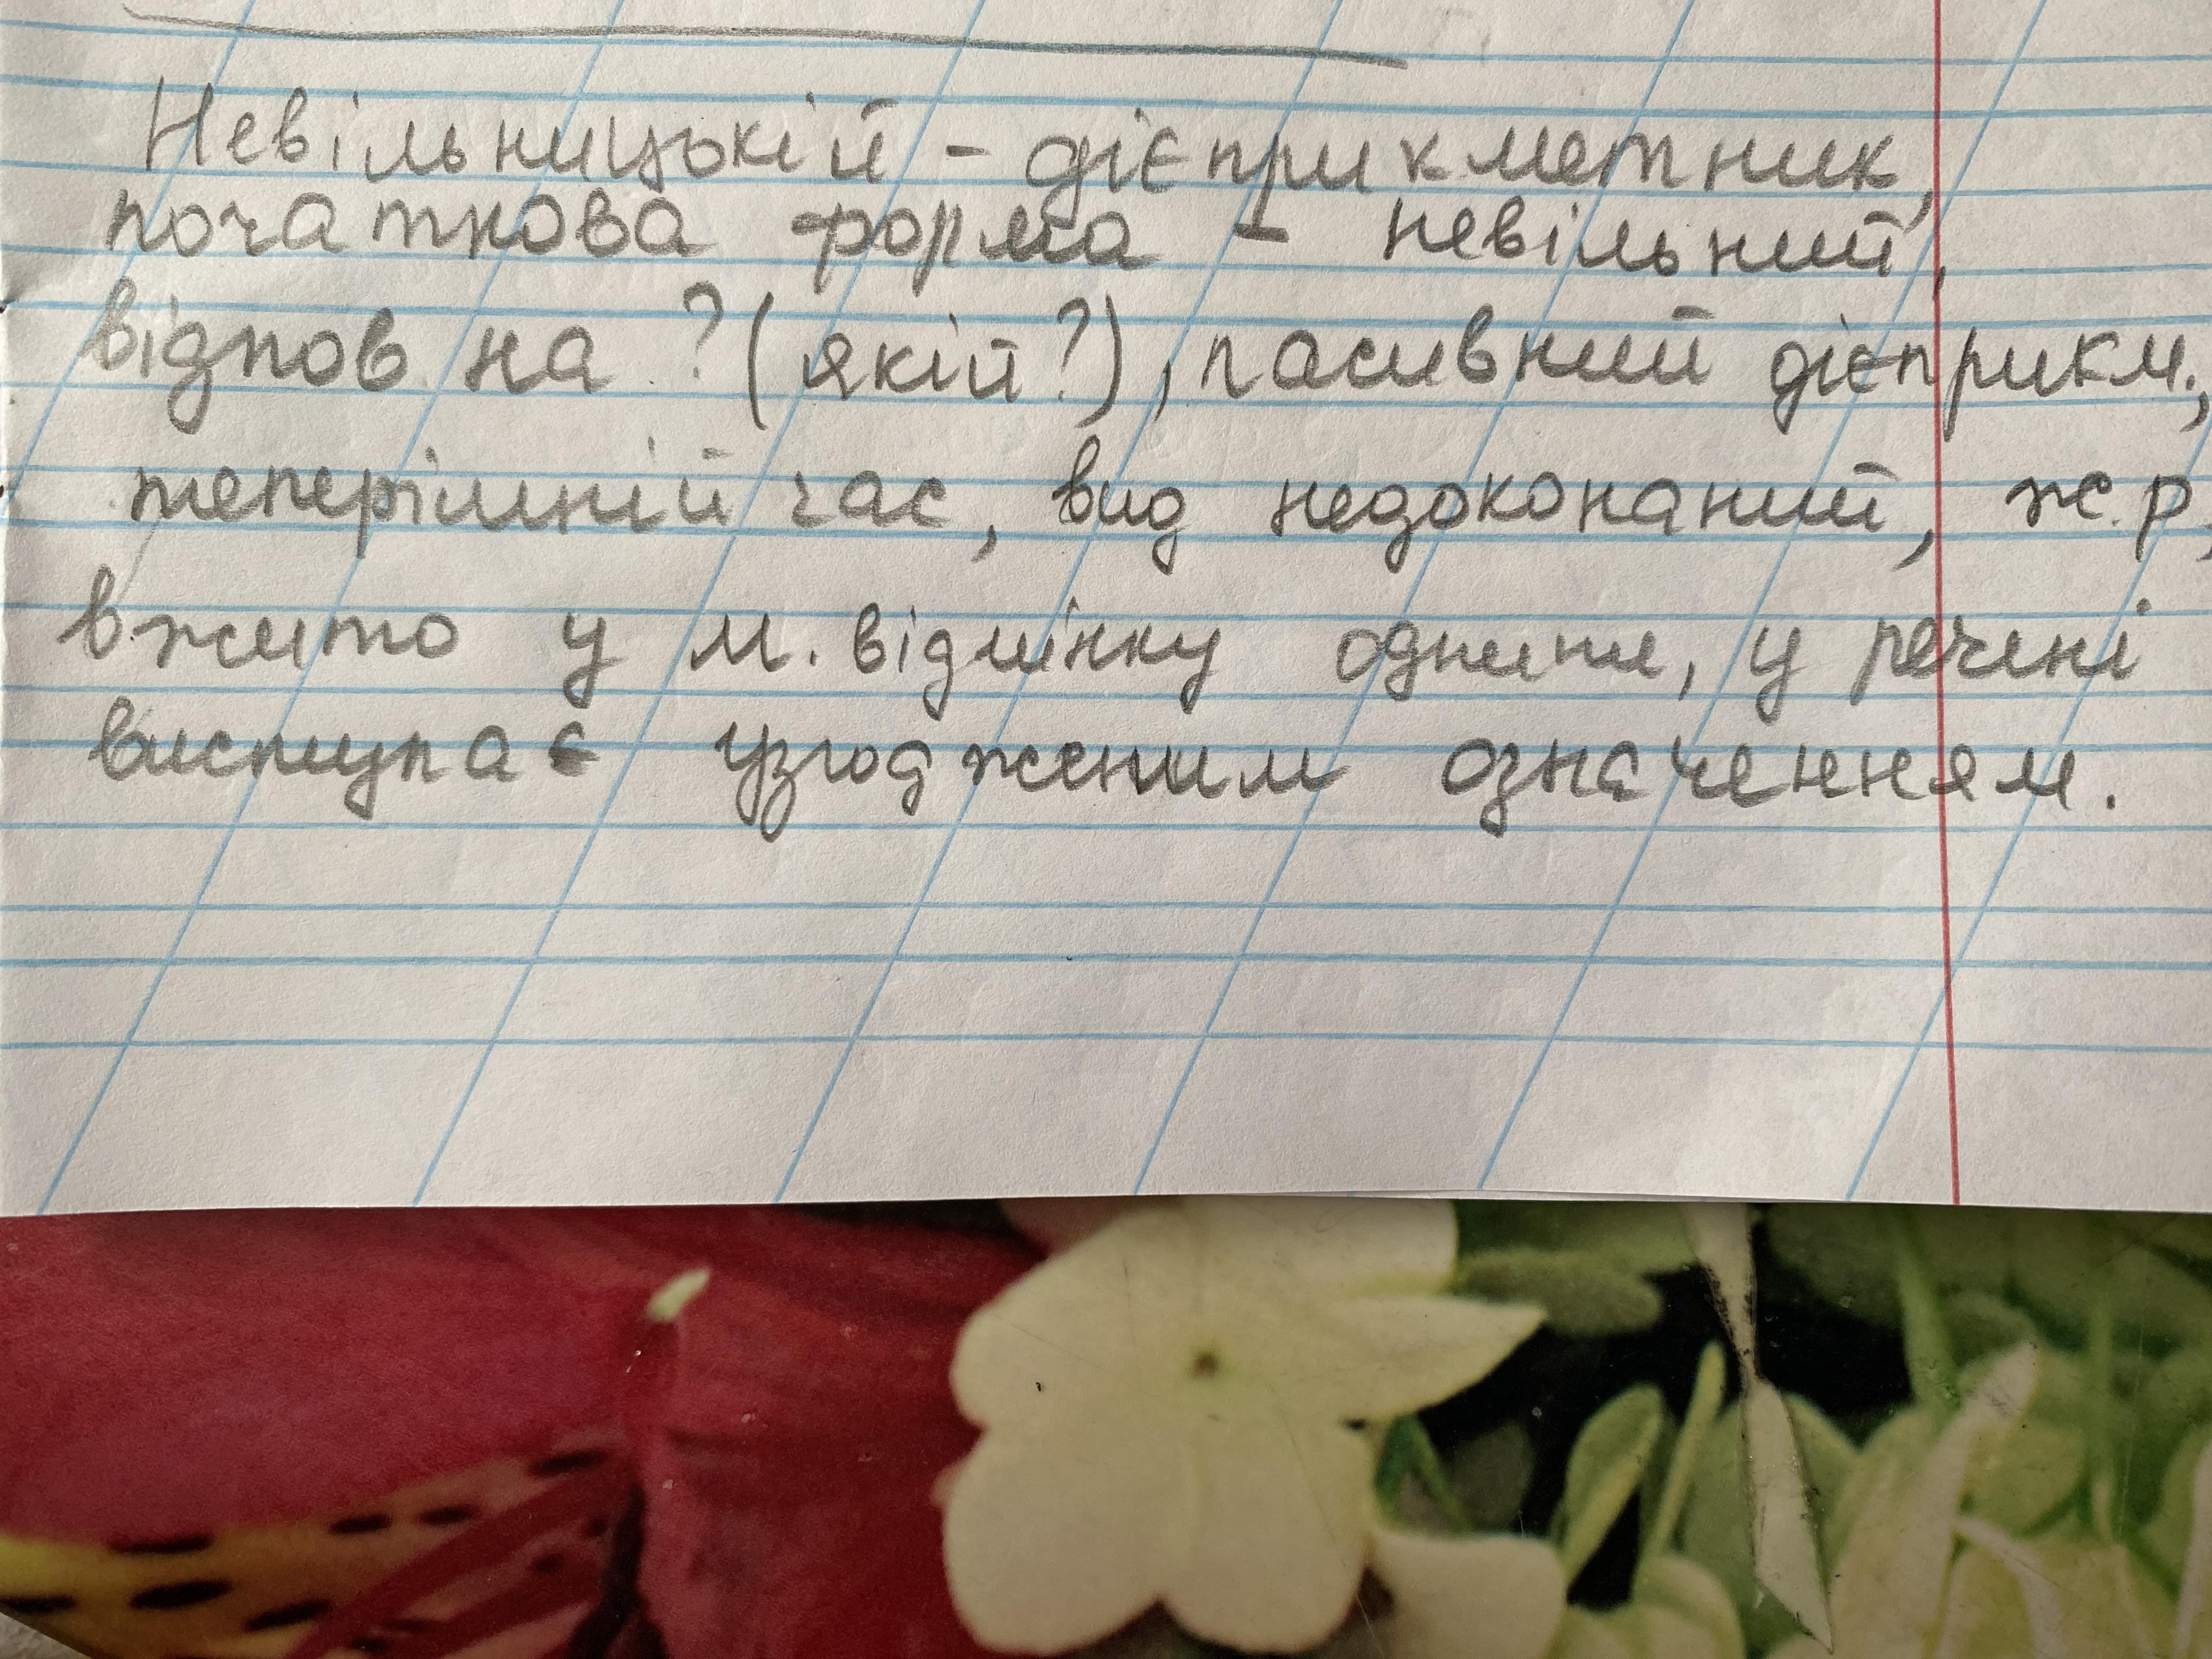 Невільницькій - дієприкметник,
початкова форма - невільний,
відпов. на ? (якій?), пасивний дієприкм.,
теперішній час, вид недоконаний, ж.р,
вжито у м. відмінку однини, у речені
виступає узгодженим означенням.